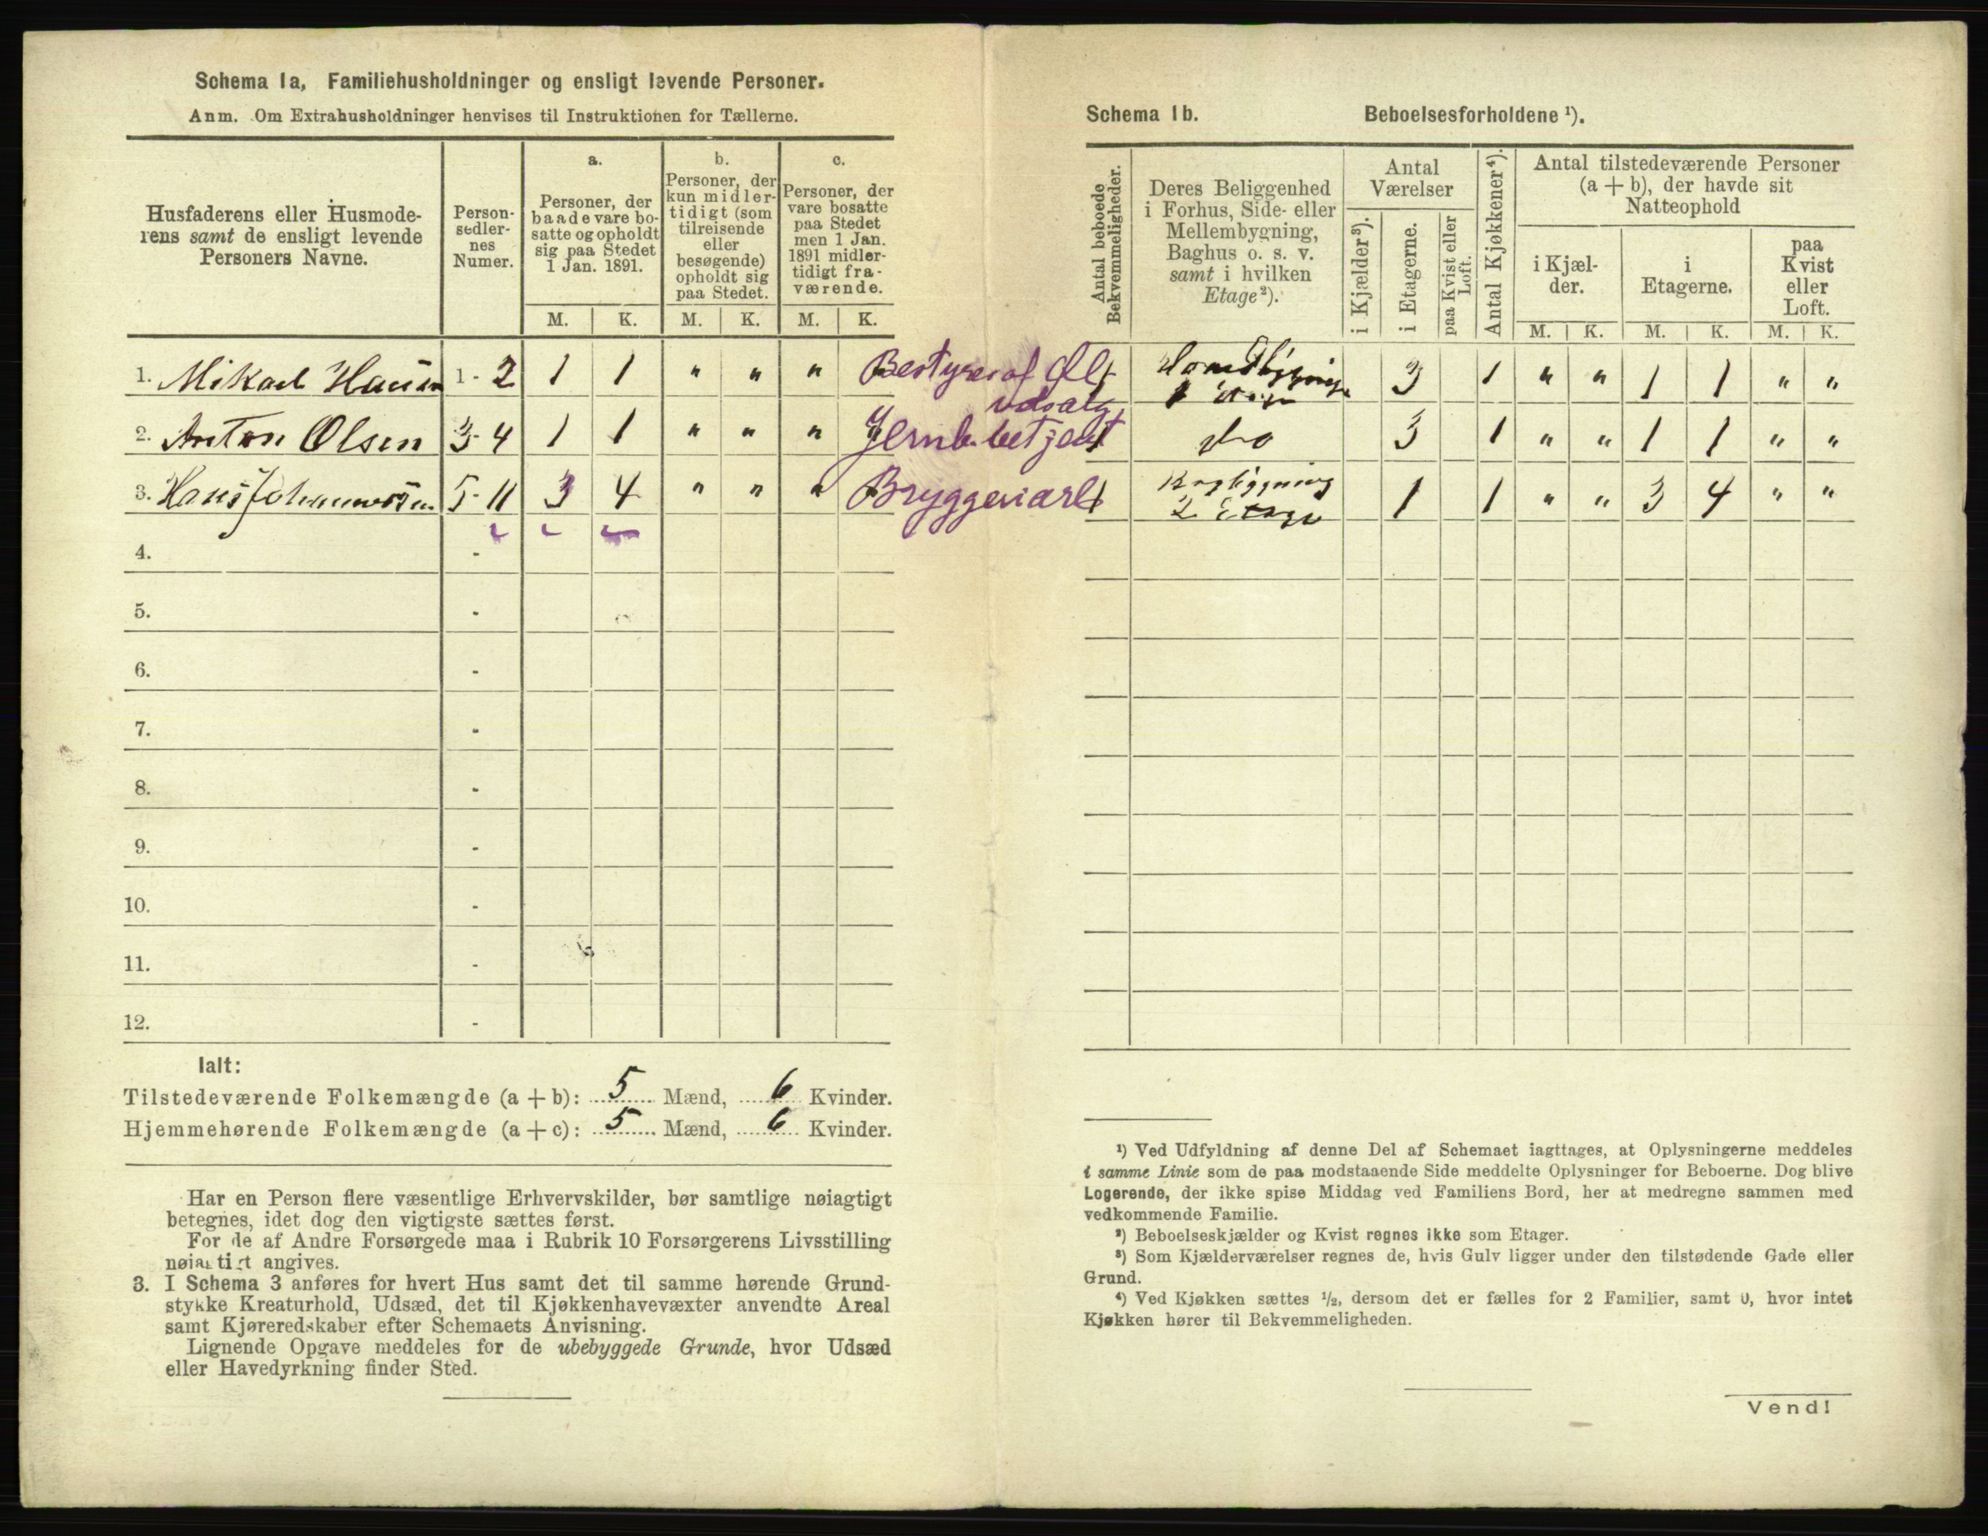 Schema 1a, Familiehusholdninger og ensligt levende Personer.
Anm. Om Extrahusholdninger henvises til Instruktionen for Tællerne.
Husfaderens eller Husmode-
rens samt de ensligt levende
Personers Navne.
Person-
sedler-
nes
Numer.
a.
Personer, der
baade vare bo-
satte og opholdt
sig paa Stedet
1 Jan. 1891.
b.
Personer, der
kun midler-
tidigt (som
tilreisende
eller
besøgende)
opholdt sig
paa Stedet.
c.
Personer, der
vare bosatte
paa Stedet
men 1 Jan.
1891 midler-
tidigt fra-
værende.
M. K. M. K. M. K.
1. Mikael Hansen 1 - 2 1 1 " " " Bestyrer af Øl-
udsalg
2. Anton Olsen 3 - 4 1 1 " " " Jernb. betjent
3. Hans Johannessen 5 - 11 3 4 " " " Bryggeriarb
4. -
5. -
6. -
7. -
8. -
9. -
10. -
11. -
12. -
Ialt:
Tilstedeværende Folkemængde (a + b): 5 Mænd, 6 Kvinder.
Hjemmehørende Folkemængde (a + c): 5 Mænd, 6 Kvinder.
Har en Person flere væsentlige Erhvervskilder, bør samtlige nøiagtigt
betegnes, idet dog den vigtigste sættes først.
For de af Andre Forsørgede maa i Rubrik 10 Forsørgerens Livsstilling
nøiagtigt angives.
3. I Schema 3 anføres for hvert Hus samt det til samme hørende Grund-
stykke Kreaturhold, Udsæd, det til Kjøkkenhavevæxter anvendte Areal
samt Kjøreredskaber efter Schemaets Anvisning.
Lignende Opgave meddeles for de ubebyggede Grunde, hvor Udsæd
eller Havedyrkning finder Sted.
Schema 1b. Beboelsesforholdene ¹).
Antal beboede
Bekvemmeligheder.
Deres Beliggenhed
i Forhus, Side- eller
Mellembygning,
Baghus o. s. v.
samt i hvilken
Etage²).
Antal
Værelser
i Kjælder³).
i Etagerne.
paa Kvist eller
Loft.
Antal Kjøkkener⁴).
Antal tilstedeværende Personer
(a + b), der havde sit
Natteophold
i Kjæl-
der.
i
Etagerne.
paa
Kvist
eller
Loft.
M. K. M. K. M. K.
1 1 Etage 3 1 " " 1 1 " "
1 do 3 1 " " 1 1 " "
1 Bagbygning
2 Etage 1 1 " " 3 4 " "
¹) Ved Udfyldning af denne Del af Schemaet iagttages, at Oplysningerne meddeles
i samme Linie som de paa modstaaende Side meddelte Oplysninger for Beboerne. Dog blive
Logerende, der ikke spise Middag ved Familiens Bord, her at medregne sammen med
vedkommende Familie.
²) Beboelseskjælder og Kvist regnes ikke som Etager.
³) Som Kjælderværelser regnes de, hvis Gulv ligger under den tilstødende Gade eller
Grund.
⁴) Ved Kjøkken sættes ½, dersom det er fælles for 2 Familier, samt 0, hvor intet
Kjøkken hører til Bekvemmeligheden.
Vend!